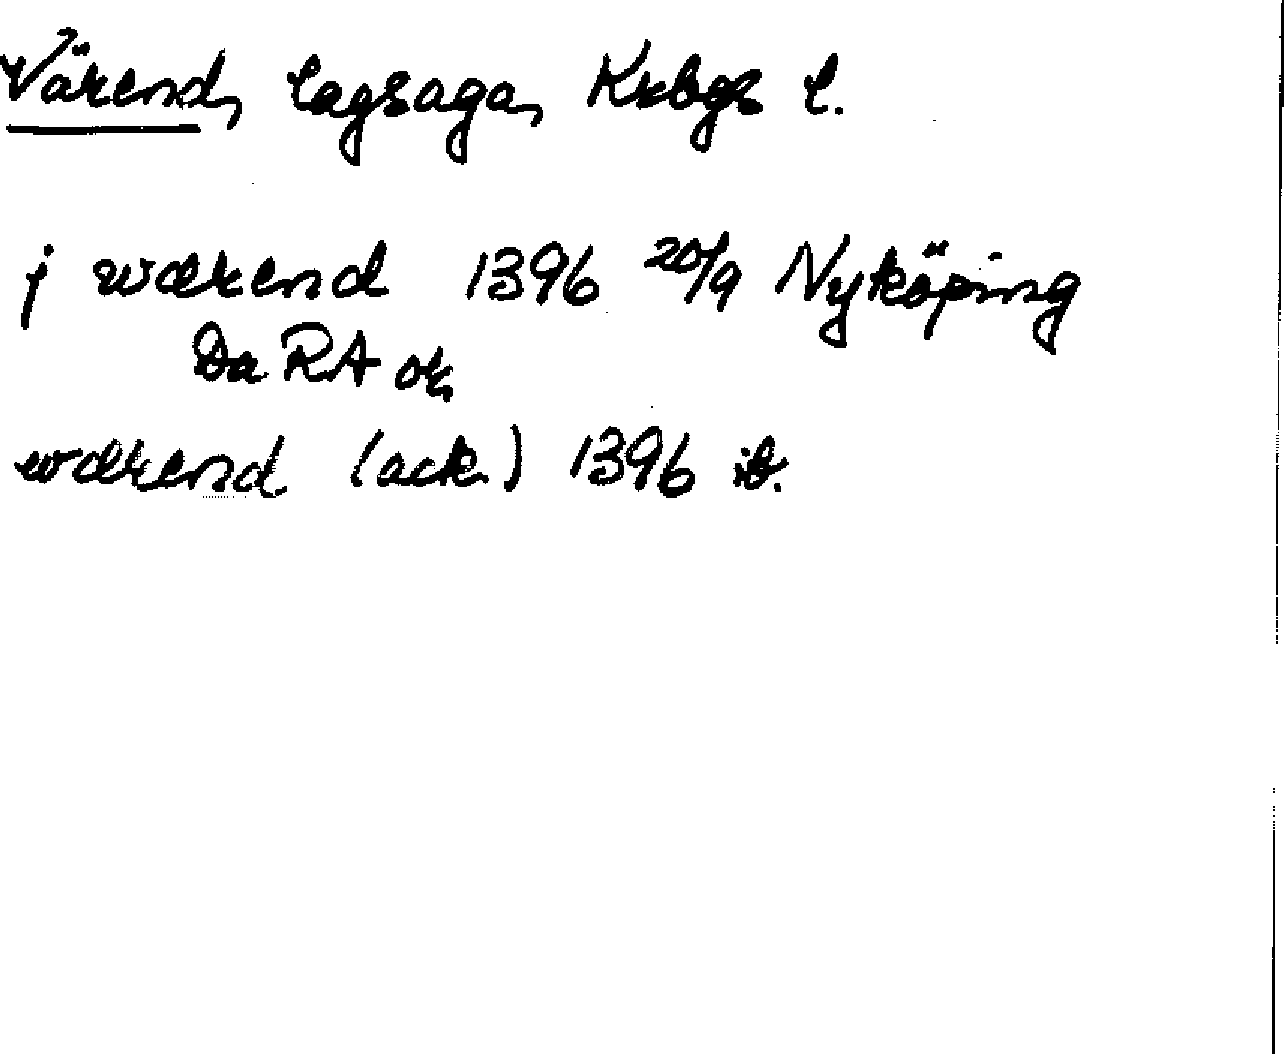 Värend, lagsaga, Krbgs l.
j wærend 1396 20/9 Nyköping
Da RA or
wærend (ack.) 1396 ib.